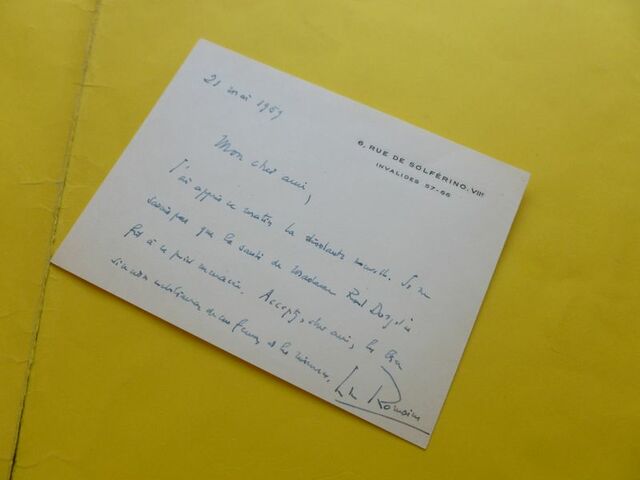 21 mai 1959
6, RUE DE SOLFÉRINO. VIIe
INVALIDES 57-66
Mon cher ami,
J'ai appris ce matin la désolante nouvelle. Je ne
savais pas que la santé de Madame Dorgelès
fût à ce point menacée. Acceptez, cher ami, les bien
sincères condoléances de ma femme, et les miennes.
Romains